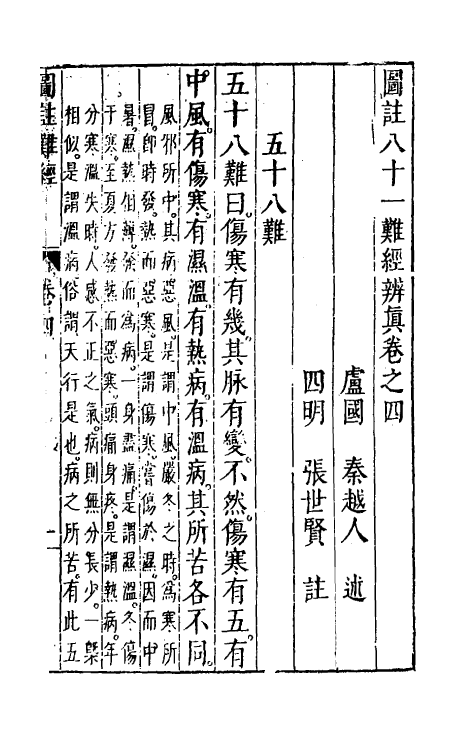 圖註八十一難經辨眞卷之四
盧國 秦越人 述
四明 張世賢 註
五十八難
五十八難曰。傷寒有幾。其脉有變。不然。傷寒有五。有
中風。有傷寒。有濕溫。有熱病。有溫病。其所苦各不同。
風邪所中。其病惡風。是謂中風。嚴冬之時。為寒所
冐。即時發熱而惡寒。是謂傷寒。嘗傷於濕。因而中
暑。濕熱相搏。發而為病。一身盡痛。是謂濕溫。冬傷
于寒。至夏方發熱而惡寒。頭痛身疼。是謂熱病。年
分寒溫失時。人感不正之氣。病則無分長少。一槩
相似。是謂溫病。俗謂天行是也。病之所苦。有此五
圖註難經 卷四